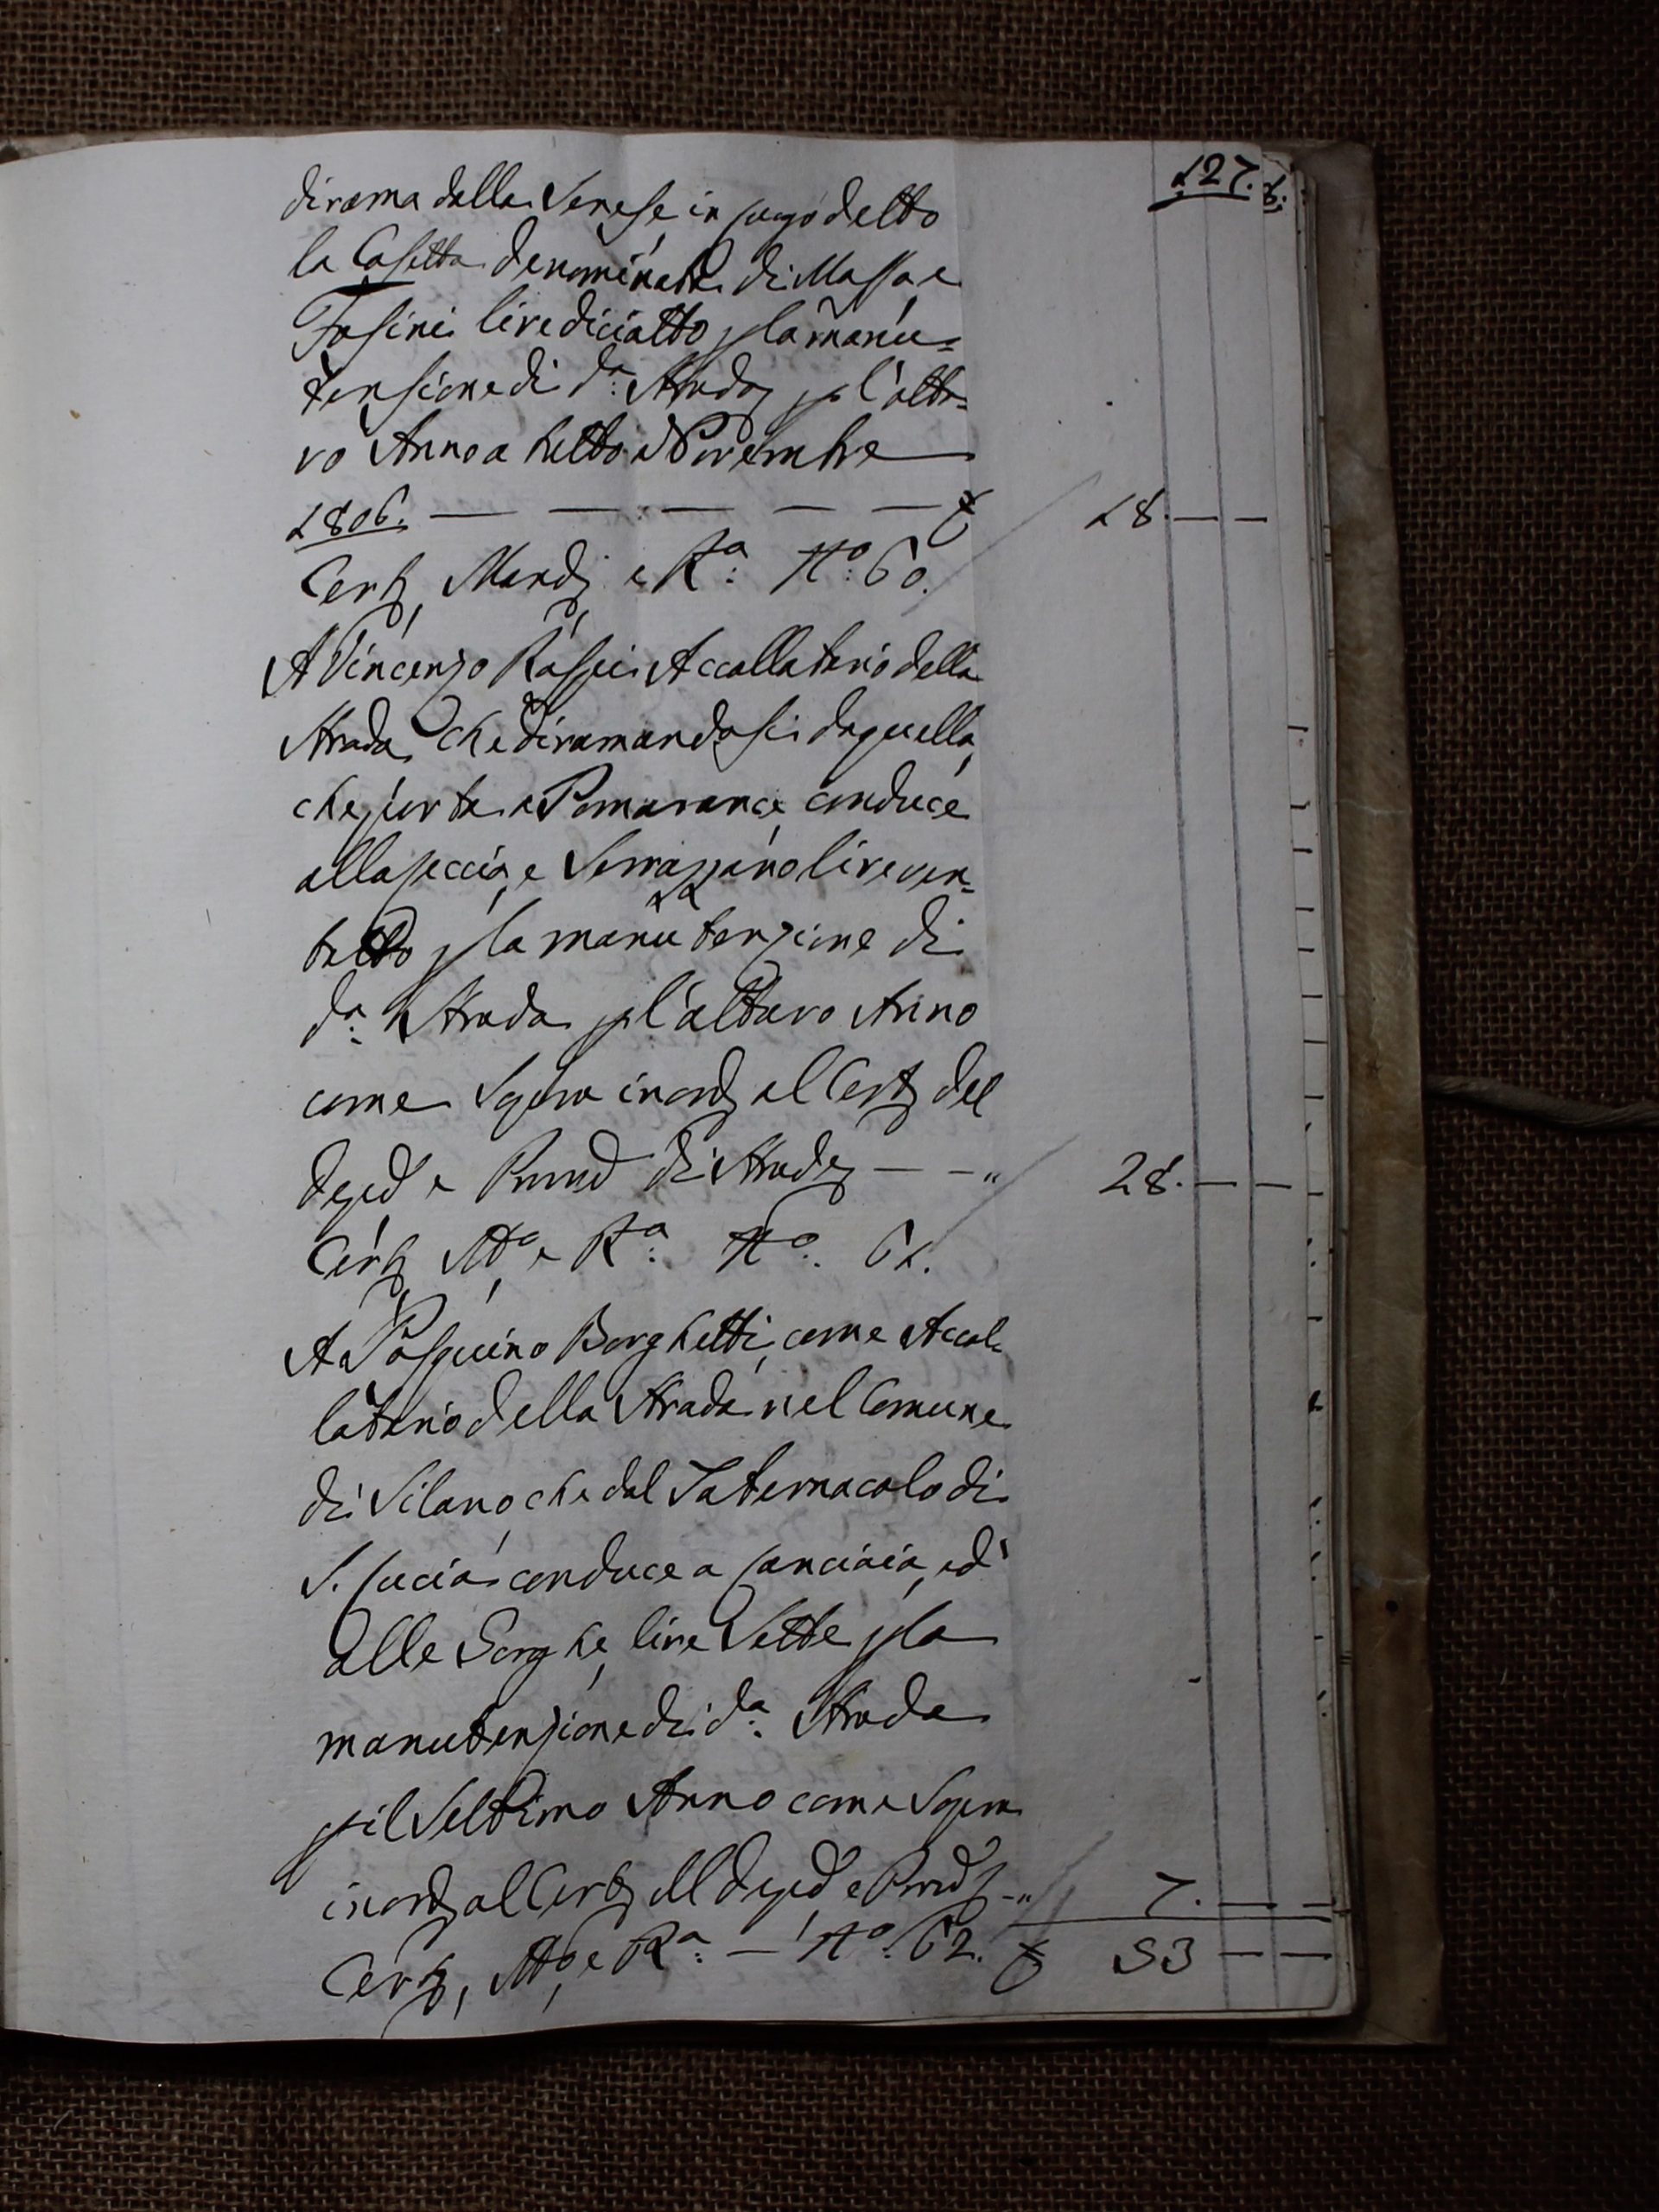 127.
dirama dalla Senese in luogo detto
la Casetta denominata di Massa e
Fosini lire diciotto p la manu=
tensione di d.a Strada p l'otta=
vo Anno a tutto Novembre
1806. — — — — — £ 18. — —
Certo, Mando, e R.a N.o 60.
A Vincenzo Raspi Accollatario della
Strada, che diramandosi da quella,
che porta a Pomarance conduce
alla Leccia, e Serrazzano lire ven=
totto p la manutenzione di
d.a Strada p l'ottavo Anno
come Sopra in ord. al Certo del
Deped e Provved di Strade — — " 28. — —
Certo M.o e R.a N.o 61.
A Pasquino Borghetti, come Accol=
latario della Strada nel Comune
di Silano, che dal Tabernacolo di
S. Lucia conduce a Lanciaia, ed
alle Borghe, lire Sette p la
manutenzione di d.a Strada
p il Settimo Anno come Sopra
in ord. al Certo del Deped e Provved — " 7. — —
Certo, M.o, e R.a — N.o 62. £ 53 — —